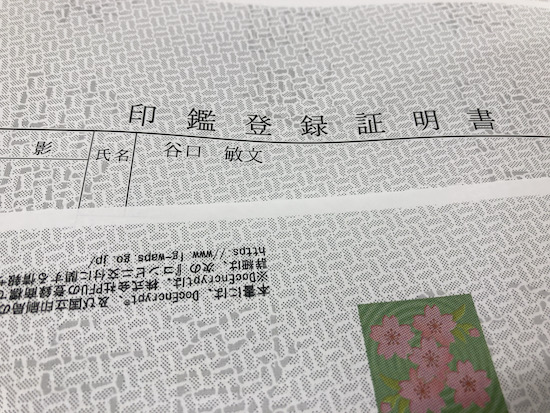 印鑑登録証明書
影 氏名 谷口 敏文
本書には、DocEncrypt®、及び国立印刷局の
※DocEncryptは、株式会社PFUの登録商標で
詳細は、次の『コンビニ交付に関する情報
https://www.lg-waps.go.jp/